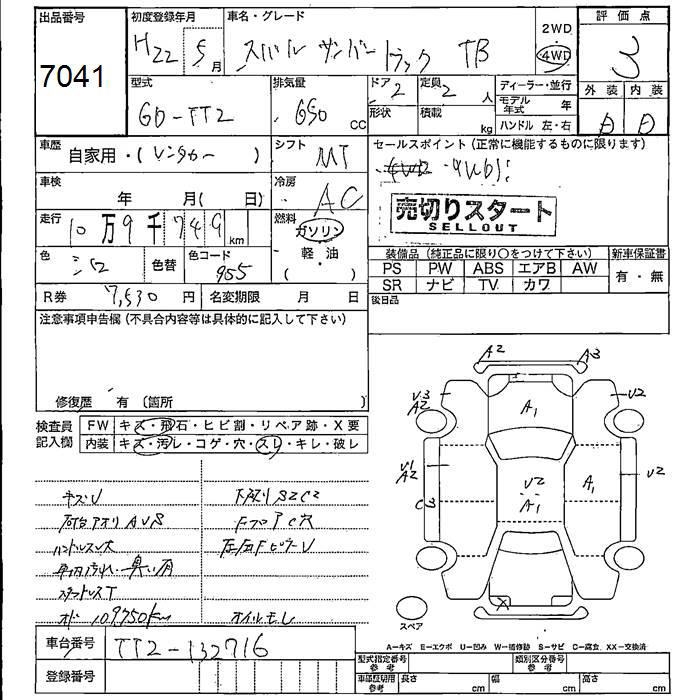 出品番号
7041
初度登録年月
H22 5月
車名・グレード
スバル サンバー トラック TB
2WD
4WD
評価点
3
外装 内装
型式
GD-TT2
排気量
650 CC
ドア 2
定員 2 人
形状
積載 kg
ディーラー・並行
モデル年式 年
ハンドル 左・右
車歴
自家用・(レンタカー)
シフト
MT
セールスポイント(正常に機能するものに限ります)
4WD!
売切りスタート
SELLOUT
車検
年 月( 日)
冷房
AC
走行
10万9千749km
燃料
ガソリン
軽・油
( )
色
シロ
色替
色コード
955
装備品(純正品に限り〇をつけて下さい)
PS PW ABS エアB AW
SR ナビ TV カワ
新車保証書
有・無
R券 7,530円
名変期限 月 日
後日品
注意事項申告欄(不具合内容等は具体的に記入して下さい)
修復歴 有(箇所 )
検査員記入欄
FW キズ・飛石・ヒビ割・リペア跡・X要
内装 キズ・汚レ・コゲ・穴・スレ・キレ・破レ
キズU
下廻りS2C2
荷台アオリAUS
ハンドルス大
スタッドレスT
オド 109750km
オイルモレ
A2
A3
U3
A2
U2
A1
U1
A2
U2
A1
A1
U2
X
スペア
A-キズ E-エクボ U-凹み W-補修跡 S-サビ C-腐食 XX-交換済
車台番号 TT2-132716
登録番号
型式指定番号
参考
類別区分番号
参考
車庫証明用
参考
長さ cm
幅 cm
高さ cm